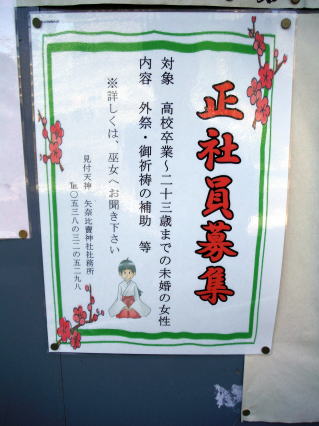 正社員募集
対象　高校卒業～二十三歳までの未婚の女性
内容　外祭・御祈祷の補助　等
※詳しくは、巫女へお聞き下さい
見付天神　矢奈比賣神社社務所
℡〇五三八の三二の五二九八